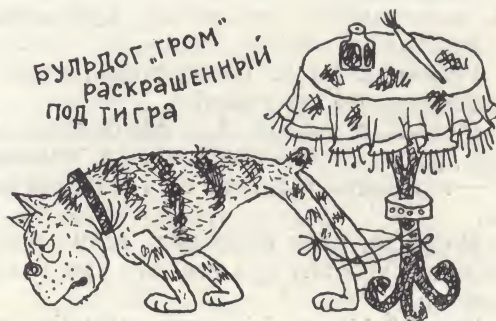 БУЛЬДОГ „ГРОМ"
РАСКРАШЕННЫЙ
ПОД ТИГРА